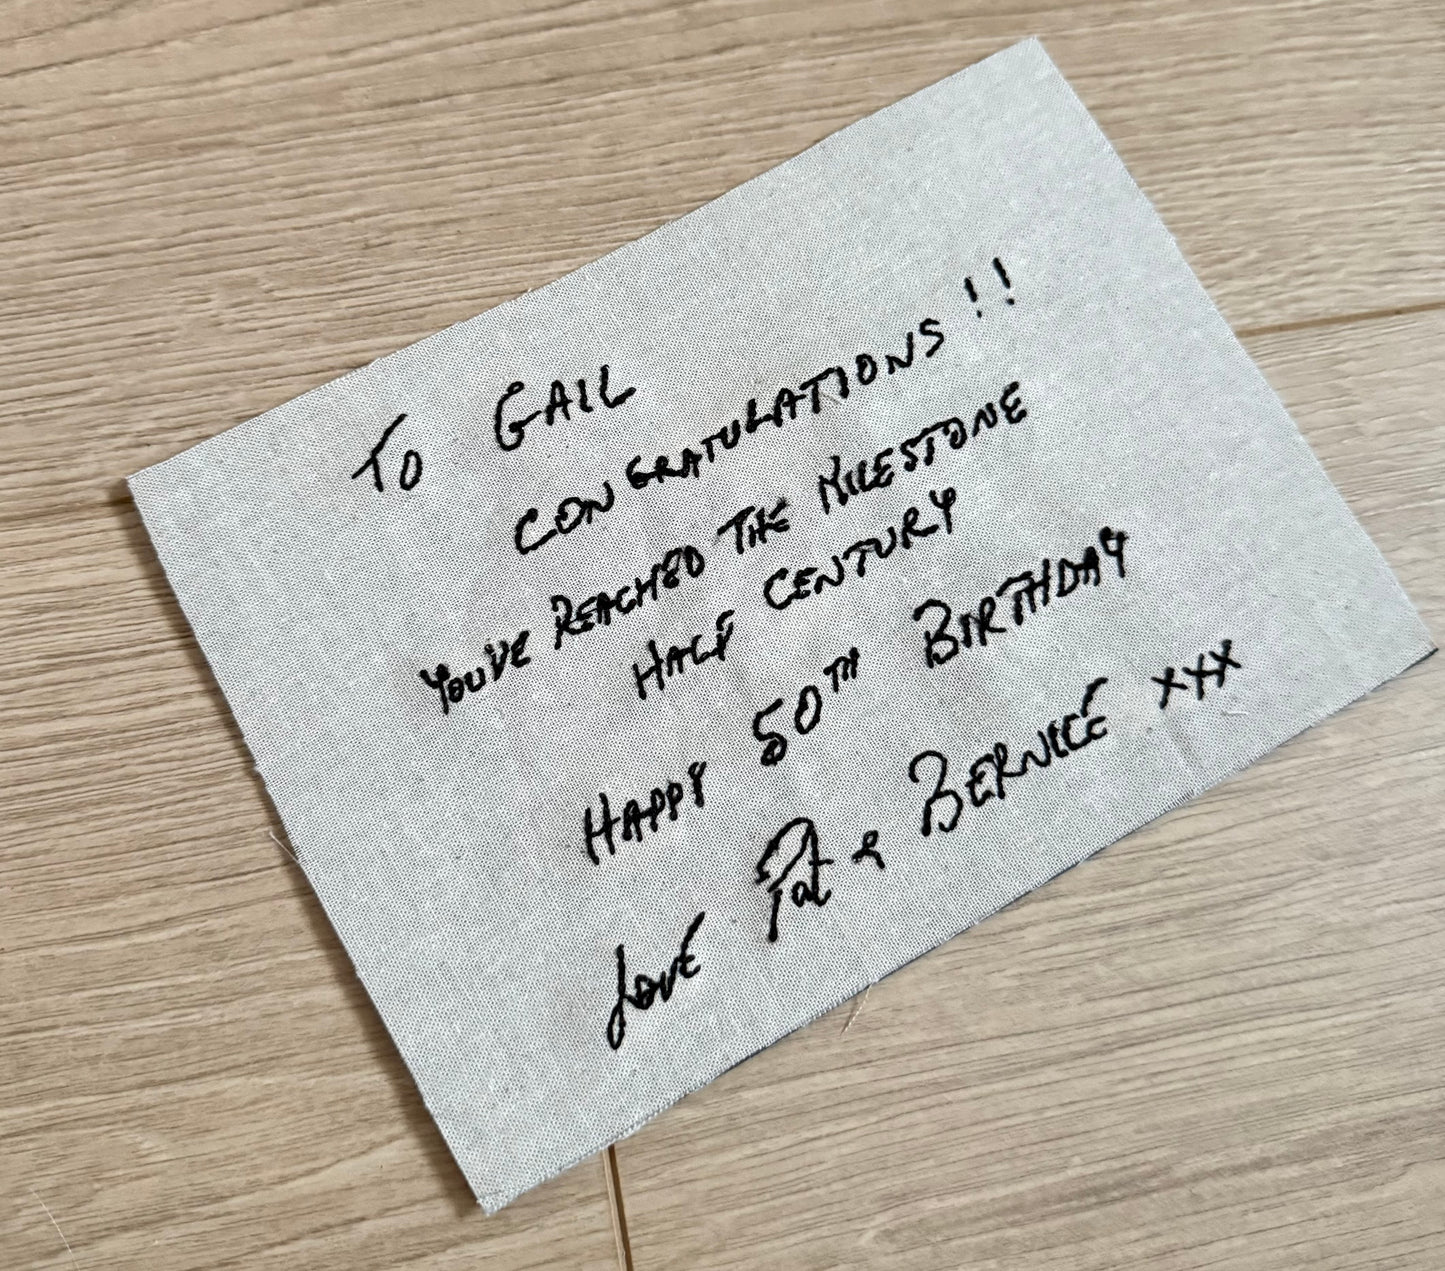 TO GAIL
CONGRATULATIONS!!
YOU'VE REACHED THE MILESTONE
HALF CENTURY
HAPPY 50TH BIRTHDAY
LOVE Pat & BERNICE xxx